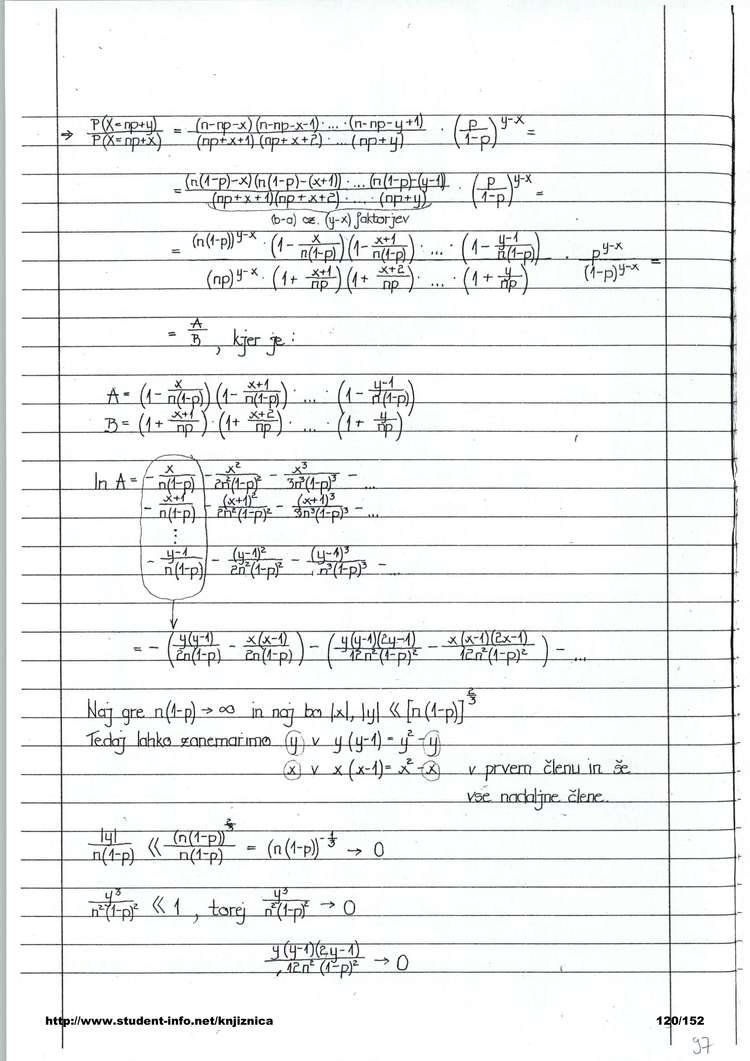 ⇒ P(X=np+y)/P(X=np+x) = (n-np-x)(n-np-x-1)·...·(n-np-y+1)/(np+x+1)(np+x+2)·...·(np+y) · (p/(1-p))^(y-x) =
= (n(1-p)-x)(n(1-p)-(x+1))·...·(n(1-p)-(y-1))/(np+x+1)(np+x+2)·...·(np+y) · (p/(1-p))^(y-x) =
(b-a) oz. (y-x) faktorjev
= (n(1-p))^(y-x) · (1 - x/n(1-p))(1 - (x+1)/n(1-p))·...·(1 - (y-1)/n(1-p)) / (np)^(y-x) · (1 + (x+1)/np)(1 + (x+2)/np)·...·(1 + y/np) · p^(y-x)/(1-p)^(y-x) =
= A/B, kjer je:
A = (1 - x/n(1-p))(1 - (x+1)/n(1-p))·...·(1 - (y-1)/n(1-p))
B = (1 + (x+1)/np)·(1 + (x+2)/np)·...·(1 + y/np)
ln A = - x/n(1-p) - x²/2n²(1-p)² - x³/3n³(1-p)³ - ...
- (x+1)/n(1-p) - (x+1)²/2n²(1-p)² - (x+1)³/3n³(1-p)³ - ...
⋮
- (y-1)/n(1-p) - (y-1)²/2n²(1-p)² - (y-1)³/n³(1-p)³ - ...
= - (y(y-1)/2n(1-p) - x(x-1)/2n(1-p)) - (y(y-1)(2y-1)/12n²(1-p)² - x(x-1)(2x-1)/12n²(1-p)²) - ...
Naj gre n(1-p) → ∞ in naj bo |x|, |y| ≪ [n(1-p)]^(2/3)
Tedaj lahko zanemarimo y v y(y-1) = y² - y
x v x(x-1) = x² - x v prvem členu in še
vse nadaljne člene.
|y|/n(1-p) ≪ (n(1-p))^(2/3)/n(1-p) = (n(1-p))^(-1/3) → 0
y³/n²(1-p)² ≪ 1, torej y³/n²(1-p)² → 0
y(y-1)(2y-1)/12n²(1-p)² → 0
http://www.student-info.net/knjiznica 120/152
97